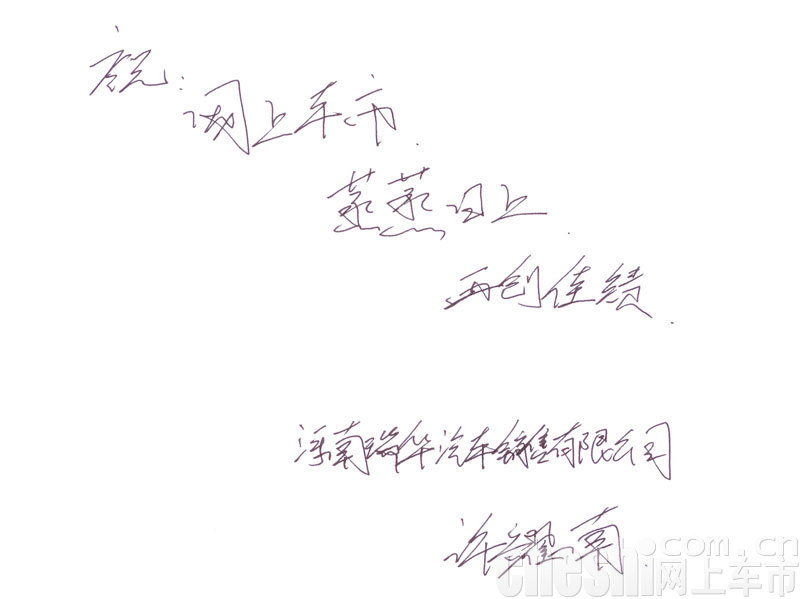 祝:
网上车市.
蒸蒸日上.
再创佳绩.
河南瑞华汽车销售有限公司
许耀南
cheshi.com.cn
网上车市